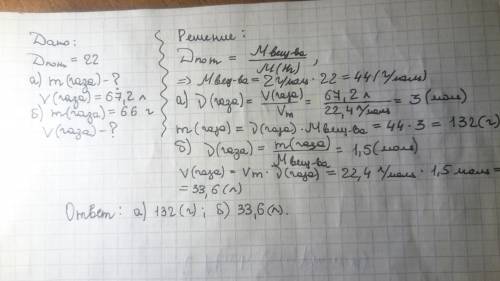 Дано:
Dпот = 22
а) m(газа) - ?
V(газа) = 67,2 л
б) m(газа) = 66 г
V(газа) - ?
Решение:
Dпот = Mвещ-ва / M(H₂) ,
⇒ Mвещ-ва = 2 г/моль · 22 = 44 (г/моль)
а) ν(газа) = V(газа) / Vm = 67,2 л / 22,4 л/моль = 3 (моль)
m(газа) = ν(газа) · Mвещ-ва = 44 · 3 = 132 (г)
б) ν(газа) = m(газа) / Mвещ-ва = 1,5 (моль)
V(газа) = Vm · ν(газа) = 22,4 л/моль · 1,5 моль =
= 33,6 (л)
Ответ: а) 132 (г); б) 33,6 (л).